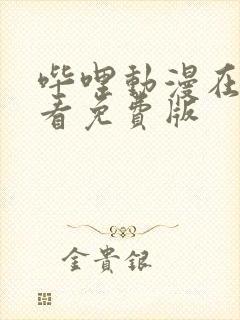 哔哩動漫在
看免費版
金貴銀